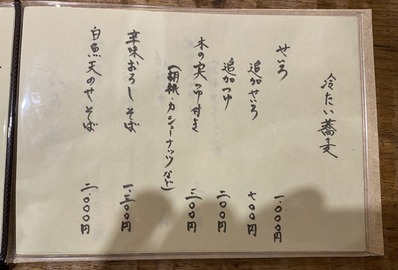 冷たい蕎麦
せいろ 一、〇〇〇円
追加せいろ 七〇〇円
追加つゆ 二〇〇円
木の実つゆ付き 一、三〇〇円
(胡桃・カシューナッツなど)
辛味おろしそば 一、三〇〇円
白魚天のせそば 二、〇〇〇円